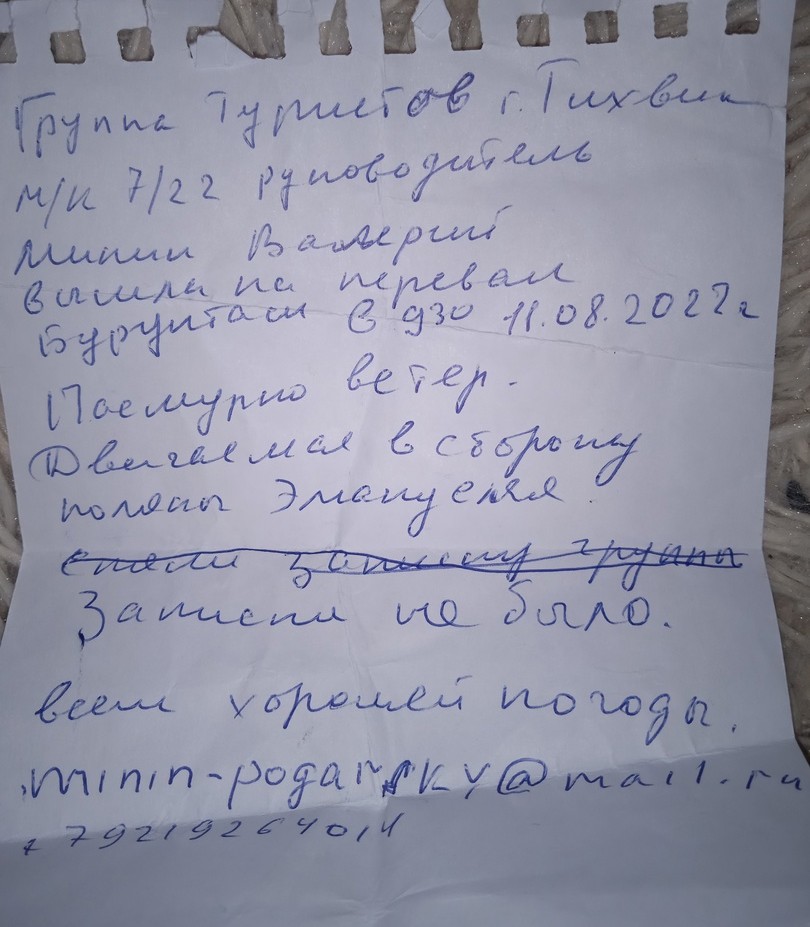 Группа Туристов г. Тихвин
м/к 7/22 руководитель
Минин Валерий
вышла на перевал
Бурунташ в 9³⁰ 11.08.2022г
Пасмурно ветер.
Двигаемся в сторону
поляны Эмануеля.
сняли записку группы
Записки не было.
всем хорошей погоды.
minin-podarsky@mail.ru